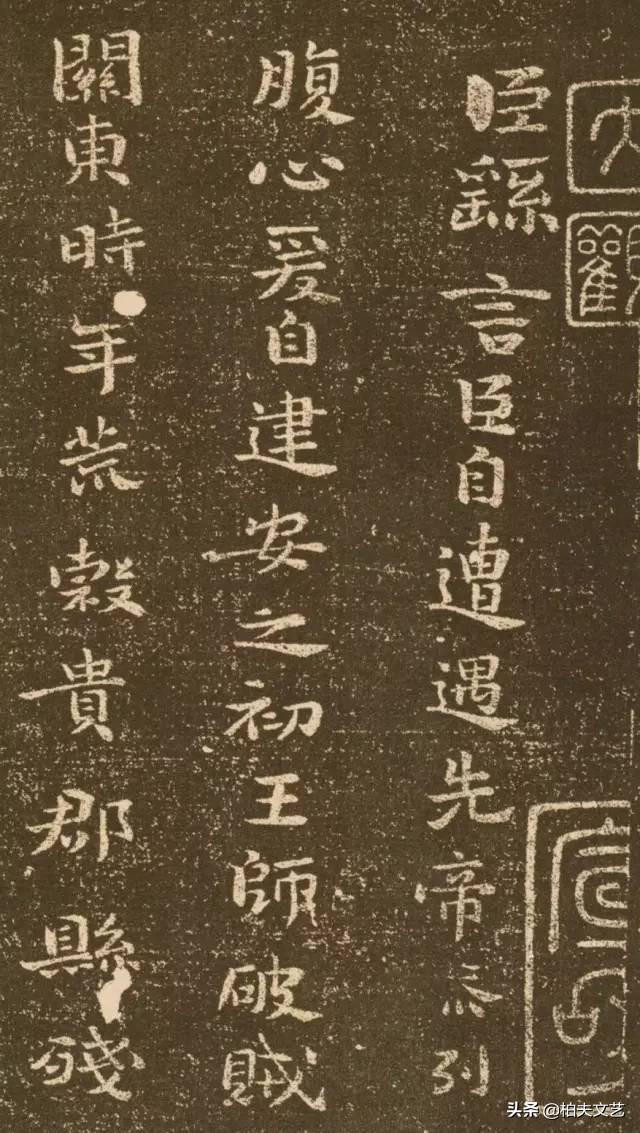 大觀
臣繇言臣自遭遇先帝忝列
腹心爰自建安之初王師破賊
關東時年荒穀貴郡縣殘
头条 @柏夫文艺